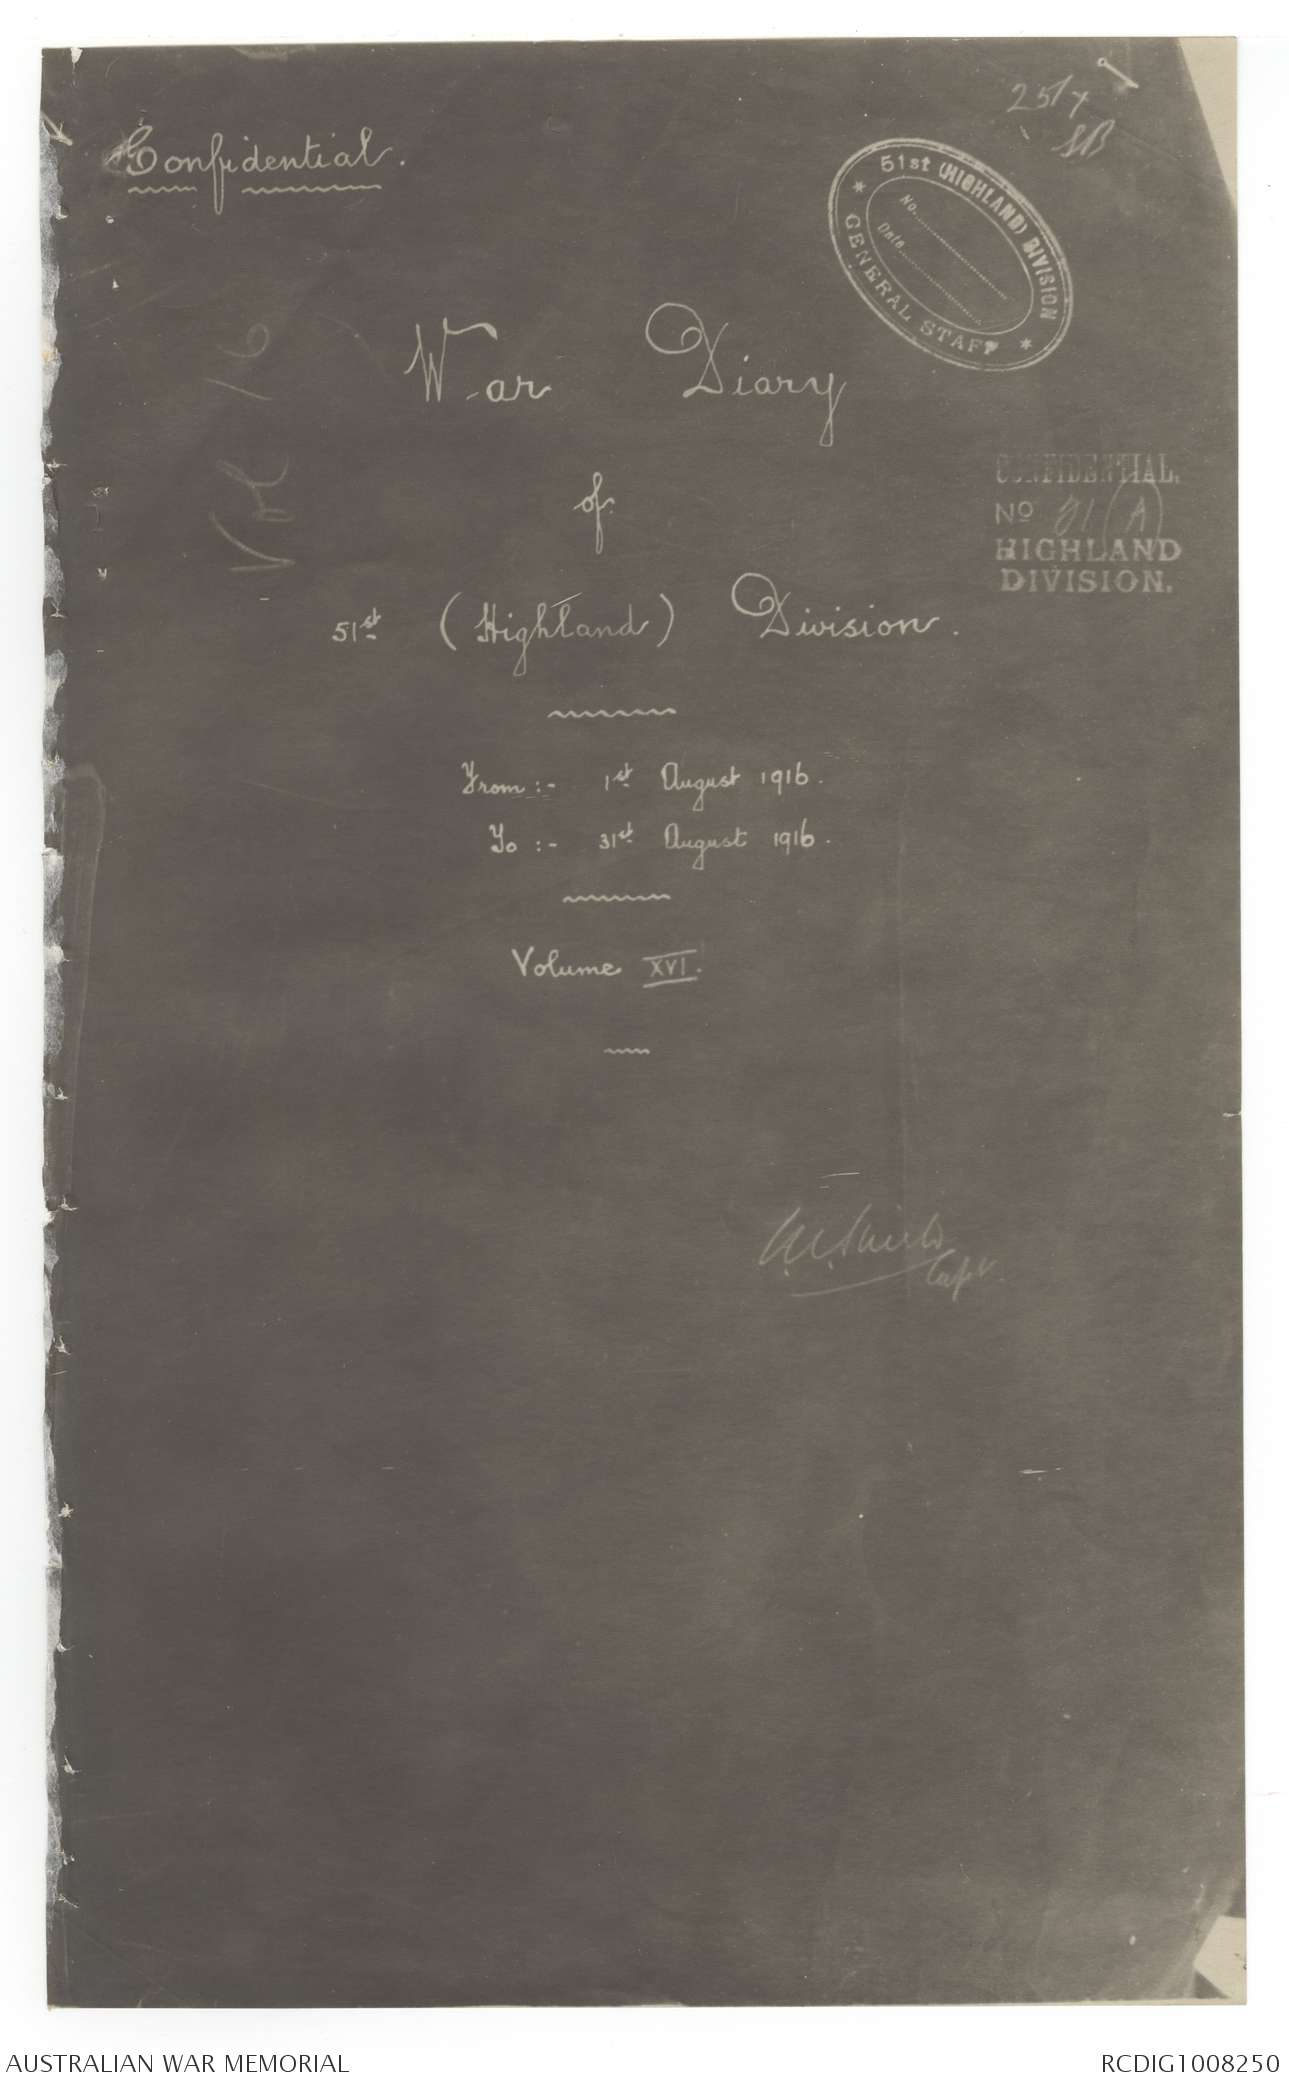 Confidential.
25/7
51st (HIGHLAND) DIVISION
No.
Date
GENERAL STAFF
Vol 16
War Diary
of
CONFIDENTIAL.
No 21 (A)
HIGHLAND
DIVISION.
51st (Highland) Division.
From :- 1st August 1916.
To :- 31st August 1916.
Volume XVI.
Capt
AUSTRALIAN WAR MEMORIAL
RCDIG1008250